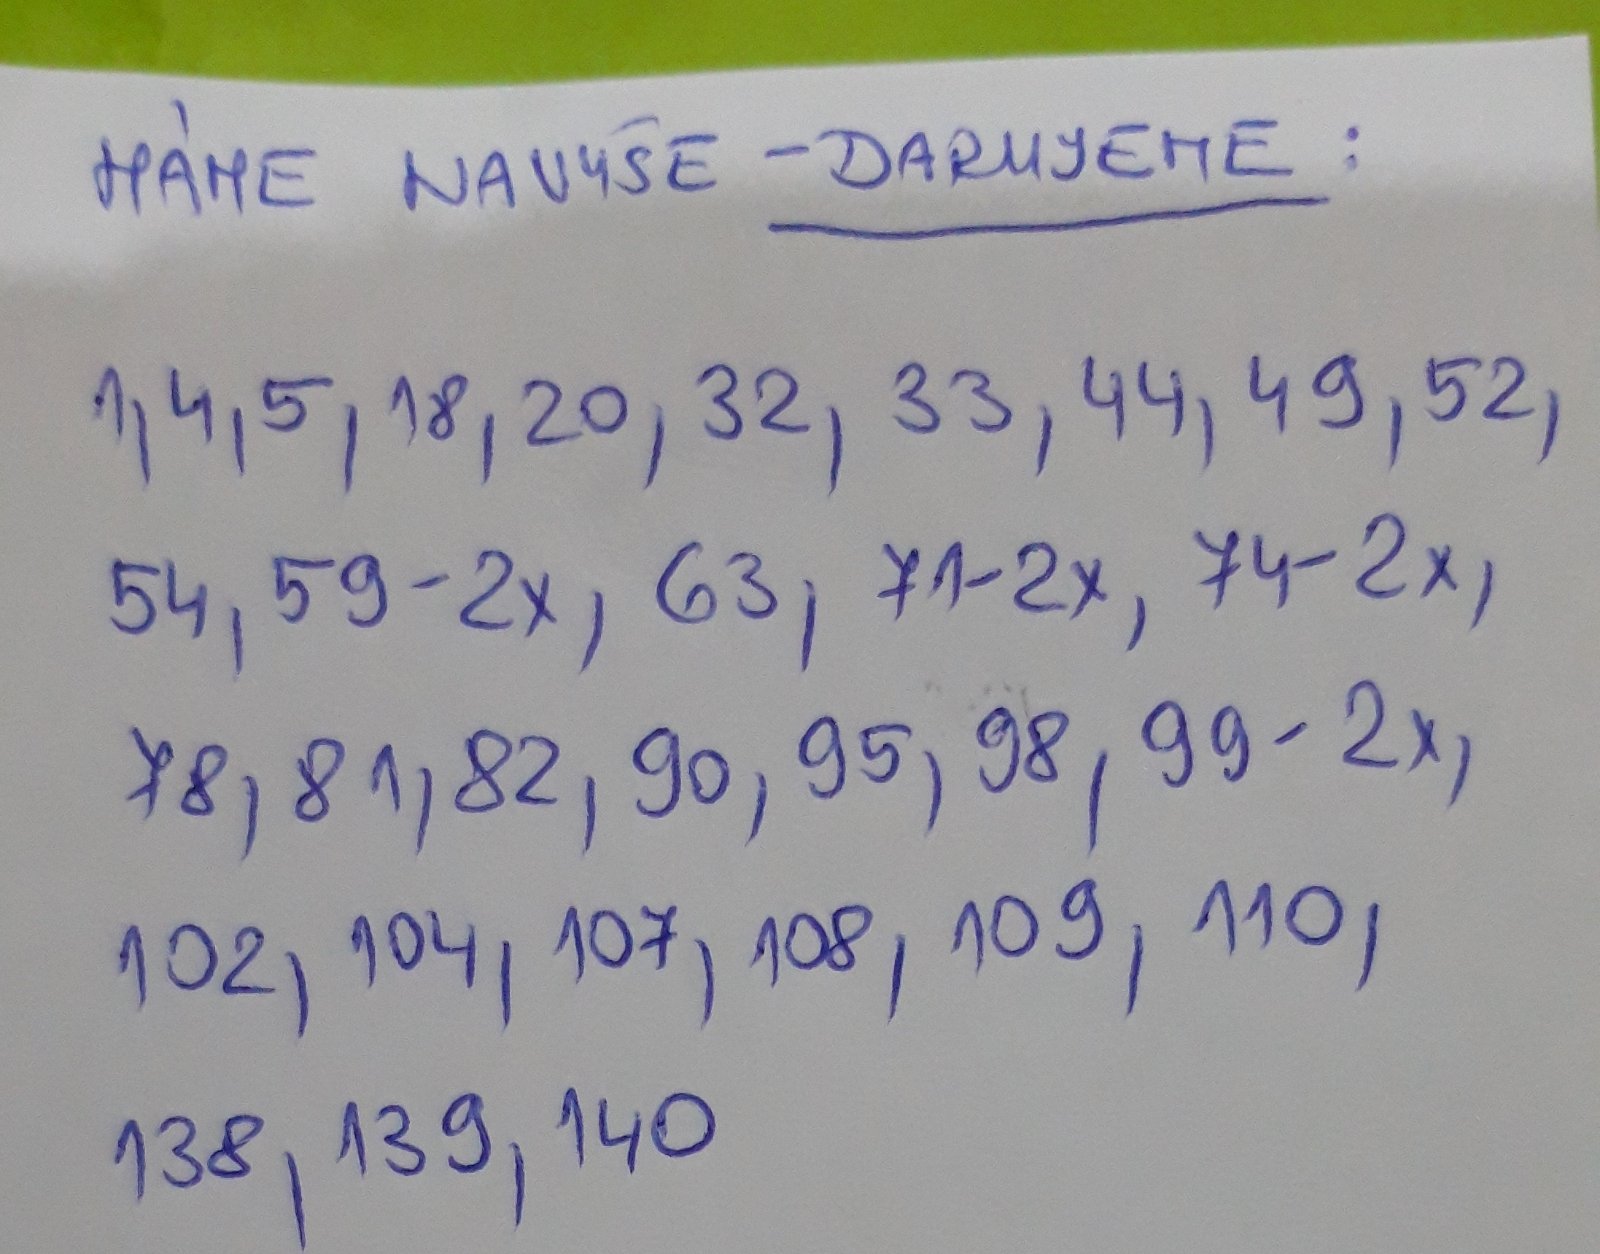 MÁME NAVYŠE - DARUJEME :
1, 4, 5, 18, 20, 32, 33, 44, 49, 52,
54, 59 - 2x, 63, 71 - 2x, 74 - 2x,
78, 81, 82, 90, 95, 98, 99 - 2x,
102, 104, 107, 108, 109, 110,
138, 139, 140